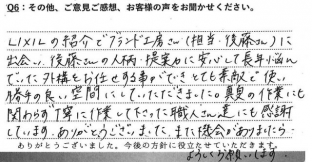 Q6：その他、ご意見ご感想、お客様の声をお聞かせください。
LIXILの紹介でブランド工房さん（担当・後藤さん）に
出会い、後藤さんの人柄・提案力に安心して長年悩ん
でいた外構をお任せする事ができとても素敵で使い
勝手の良い空間にしていただきました。真夏の作業にも
関わらず丁寧に作業して下さった職人さん達にも感謝
しています。ありがとうございました。また機会がありましたら
ありがとうございました。今後の方針に役立たせていただきます。
よろしくお願いします